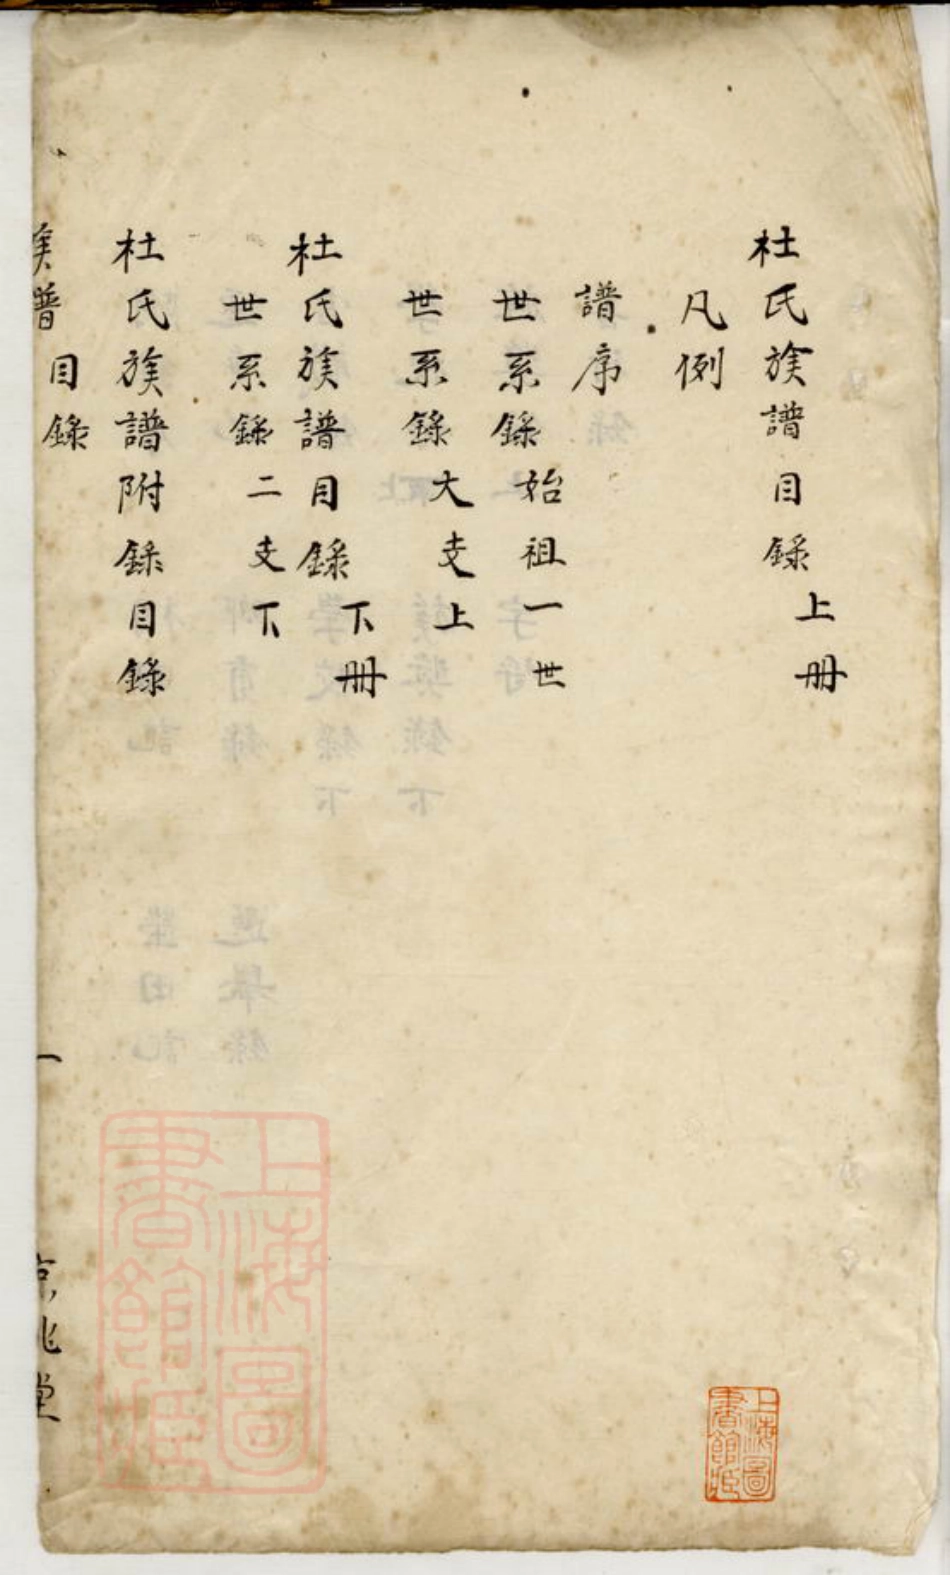 杜氏族譜目錄上册
凡例
譜序
世系錄始祖一世
世系錄大支上
杜氏族譜目錄下册
世系錄二支下
杜氏族譜附錄目錄
族譜目錄
一
京兆堂
上海圖書館藏
上海圖書館藏